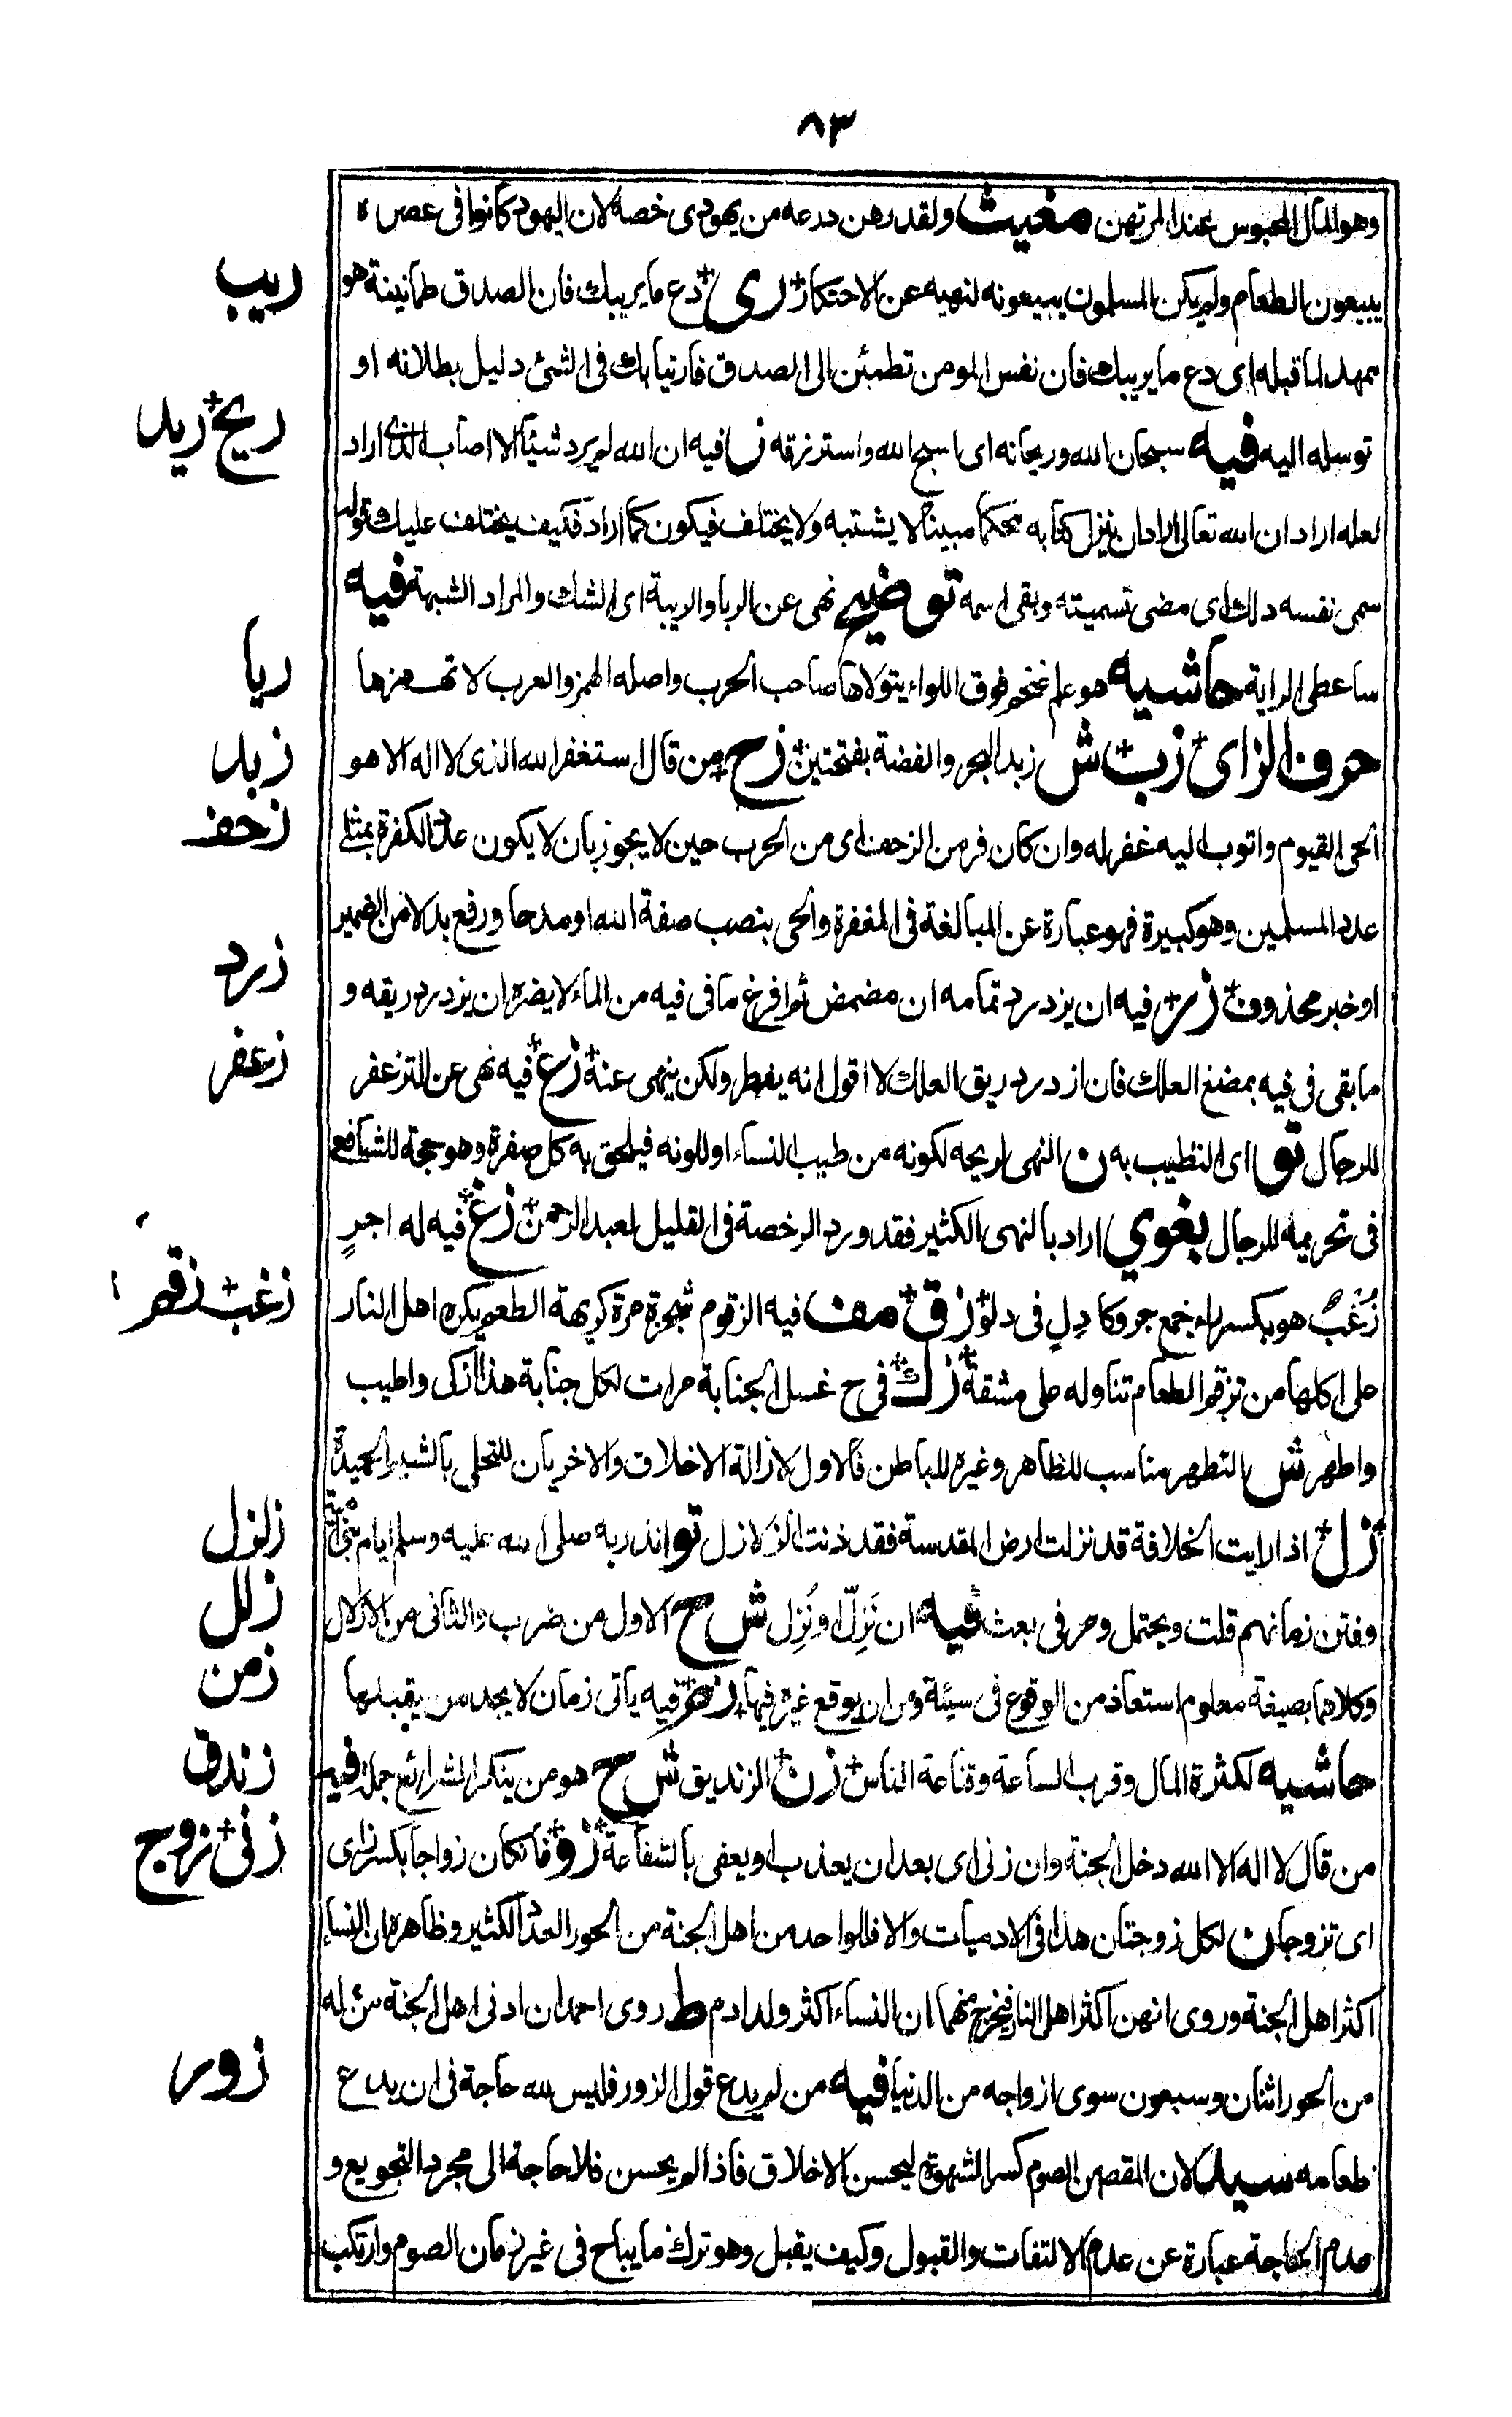 ٨٣
وهو المال المحبوس عند المرتهن مغيث ولقد رهن درعه من يهودى خصه لان اليهود كانوا فى عصره
ريب
يبيعون الطعام ولم يكن المسلمون يبيعونه لنهيه عن الاحتكار رى دع ما يريبك فان الصدق طمانينة هو
ممهد لما قبله اى دع ما يريبك فان نفس المومن تطمئن الى الصدق فارتيابك فى الشئ دليل بطلانه او
ريح ريد
توسله اليه فيه سبحان الله وريحانه اى اسبح الله واسترزقه ن فيه ان الله لم يرد شيئا الا اصاب الذى اراد
لعله اراد ان الله تعالى اراد ان ينزل كتابه محكما مبينا لا يشتبه ولا يختلف فيكون كما اراد فكيف يختلف عليك قوله
سمى نفسه ذلك اى مضى تسميته وبقى اسمه توضيح نهى عن الربا والريبة اى الشك والمراد الشبهة فيه
ريا
ساعطى الراية حاشيه هو علم ضخم فوق اللواء يتولاها صاحب الحرب واصله الهمز والعرب لا تهمزها
زبد
حرف الزاى زب ش زبد البحر والفضة بفتحتين زح من قال استغفر الله الذى لا اله الا هو
زحف
الحى القيوم واتوب اليه غفر له وان كان فر من الزحف اى من الحرب حين لا يجوز بان لا يكون عدد الكفرة بمثلى
عدد المسلمين وهو كبيرة فهو عبارة عن المبالغة فى المغفرة والحى بنصب صفة الله او مدحا ورفع بدلا من الضمير
زرد
او خبر محذوف زر فيه ان يزدرد تمامه ان مضمض ثم افرغ ما فى فيه من الماء لا يضره ان يزدرد ريقه و
زعفر
ما بقى فى فيه بمضغ العلك فان ازدرد ريق العلك لا اقول انه يفطر ولكن ينهى عنه زع فيه نهى عن التزعفر
للرجال تو اى التطيب به ن النهى لريحه لكونه من طيب النساء او للونه فيلحق به كل صفرة وهو حجة للشافعى
فى تحريمه للرجال بغوي اراد بالنهى الكثير فقد ورد الرخصة فى القليل لعبد الرحمن زغ فيه له اجرٍ
زغب زقم
زُغْبٌ هو بكسر راء جمع جرو كادلٍ فى دلو زق مف فيه الزقوم شجرة مرة كريهة الطعم يكره اهل النار
على اكلها من تزقم الطعام تناوله على مشقة زك فى ح غسل الجنابة مرات لكل جنابة هذا ازكى واطيب
واطهر ش التطهر مناسب للظاهر وغيره للباطن فالاول لازالة الاخلاق والاخريان للتحلى بالشيم الحميدة
زلزل
زل اذا رايت الخلافة قد نزلت ارض المقدسة فقد دنت الزلازل تو انذر به صلى الله عليه وسلم ايام بنى امية
زلل
وفتن زمانهم قلت ويحتمل ومر فى بعث فيه ان نَزِلّ او نُزِل ش ح الاول من ضرب والثانى من الازلال
زمن
وكلاهما بصيغة معلوم استعاذ من الوقوع فى سيئة ومن ان يوقع غيره فيها زم فيه ياتى زمان لا يجد من يقبلها
زندق
حاشيه لكثرة المال وقرب الساعة وقناعة الناس زن الزنديق ش ح هو من ينكر الشرائع جملة فيه
زنى زوج
من قال لا اله الا الله دخل الجنة وان زنى اى بعد ان يعذب او يعفى بالشفاعة زو فانكان زواجا بكسر زاى
اى تزوجا ن لكل زوجتان هذا فى الادميات والا فللواحد من اهل الجنة من الحور العدد الكثير وظاهره ان النساء
اكثر اهل الجنة وروى انهن اكثر اهل النار فيخرج منهما ان النساء اكثر ولد ادم ط روى احمد ان ادنى اهل الجنة من له
زور
من الحور اثنان وسبعون سوى ازواجه من الدنيا فيه من لم يدع قول الزور فليس لله حاجة فى ان يدع
طعامه سيد لان المقصد من الصوم كسر الشهوة ليحسن الاخلاق فاذا لم يحسن فلا حاجة الى مجرد التجويع و
عدم الحاجة عبارة عن عدم الالتفات والقبول وكيف يقبل وهو ترك ما يباح فى غير زمان الصوم وارتكب